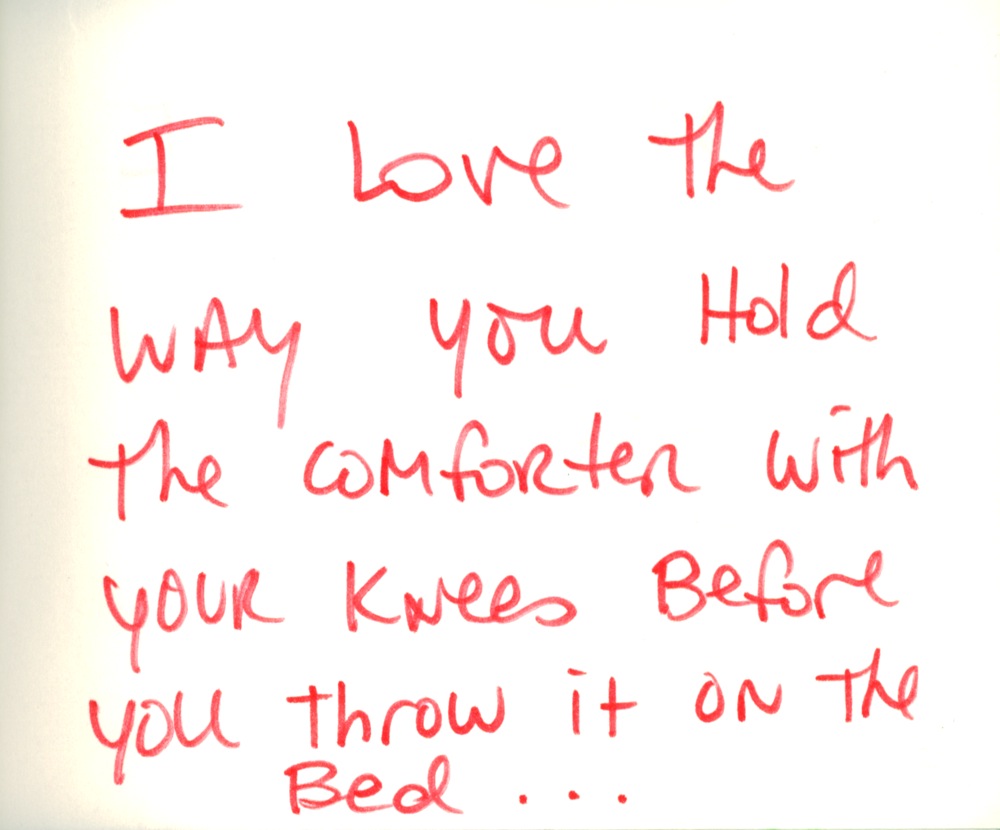 I Love the
WAY you Hold
the comforter with
your Knees Before
you throw it on the
Bed ...